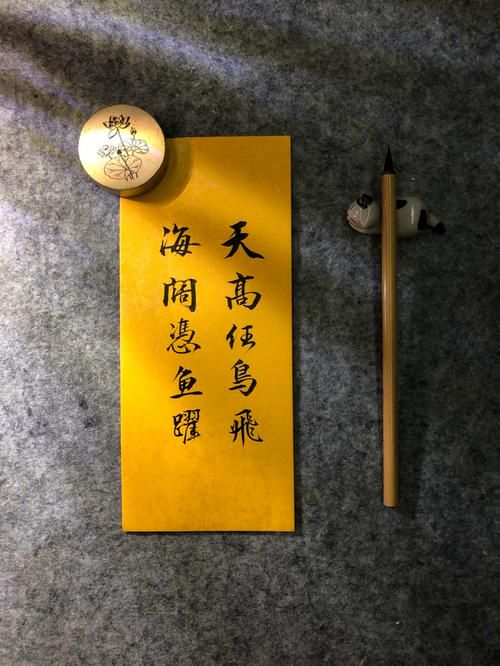 天高任鳥飛
海闊憑魚躍